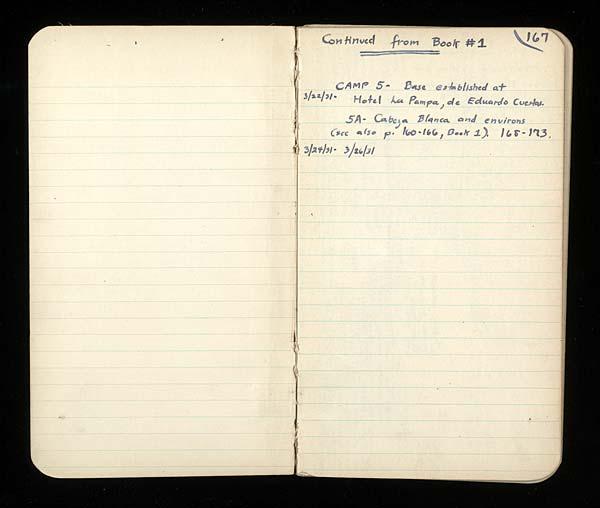 167
Continued from Book #1
CAMP 5- Base established at
3/22/31- Hotel La Pampa, de Eduardo Cuertas.
5A- Cabeza Blanca and environs
(see also p. 160-166, Book 1). 168-173.
3/24/31- 3/26/31